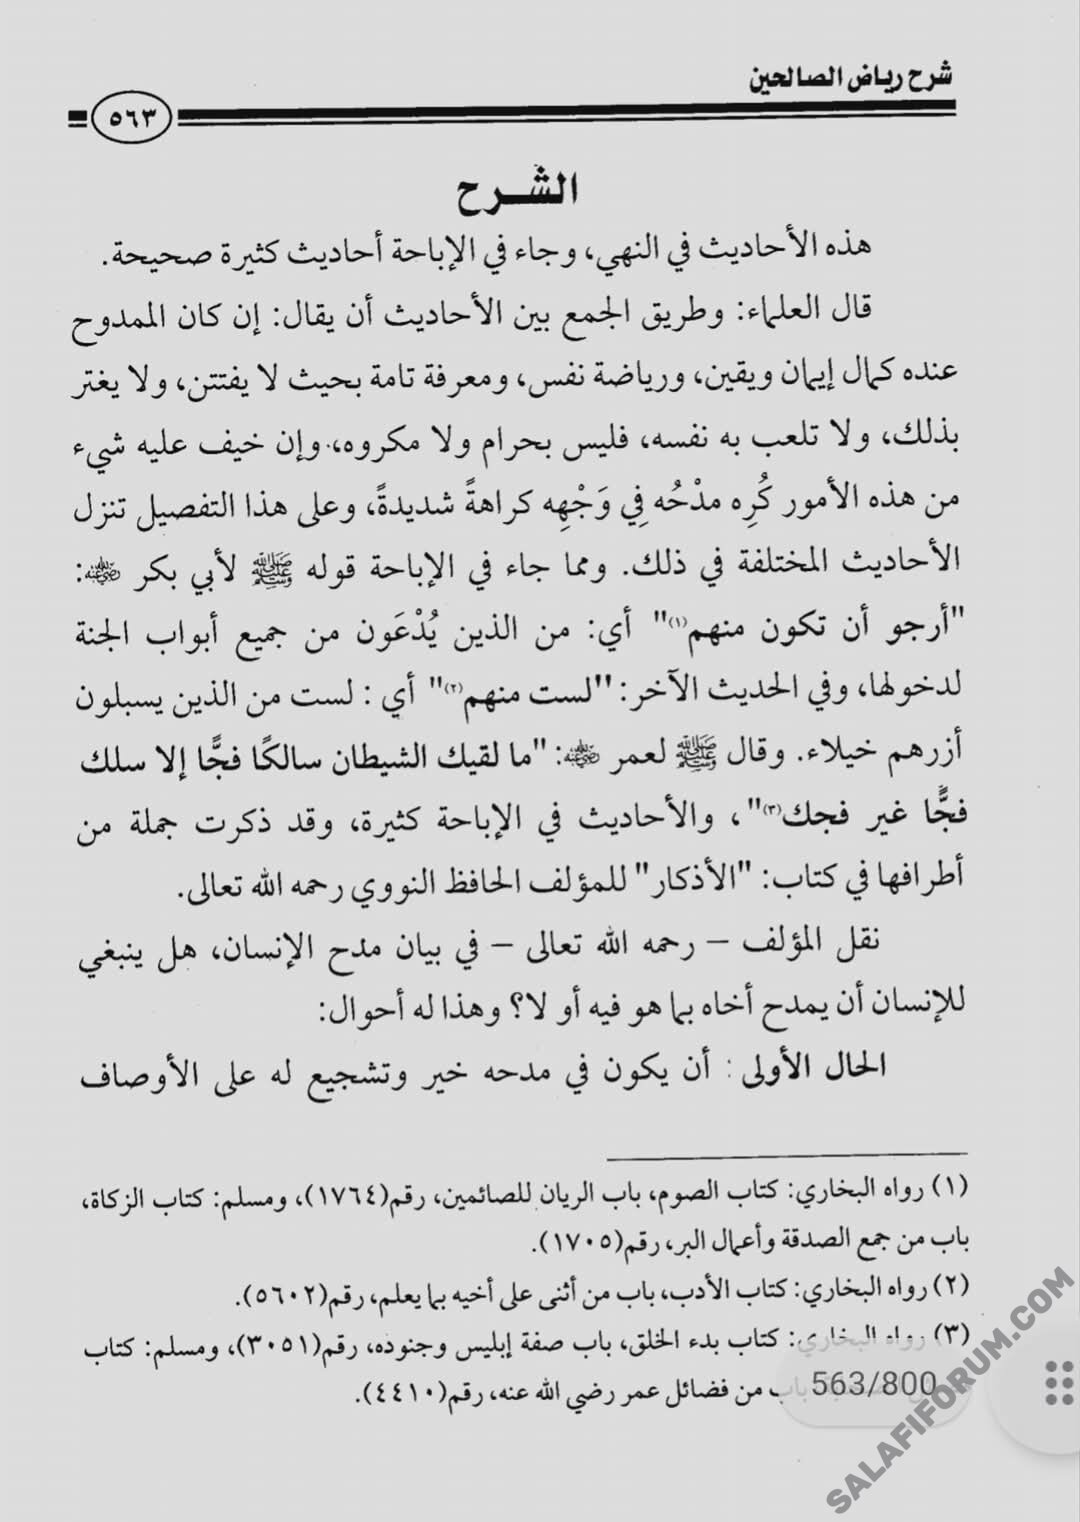 شرح رياض الصالحين
٥٦٣
الشـرح
هذه الأحاديث في النهي، وجاء في الإباحة أحاديث كثيرة صحيحة.
قال العلماء: وطريق الجمع بين الأحاديث أن يقال: إن كان الممدوح
عنده كمال إيمان ويقين، ورياضة نفس، ومعرفة تامة بحيث لا يفتتن، ولا يغتر
بذلك، ولا تلعب به نفسه، فليس بحرام ولا مكروه، وإن خيف عليه شيء
من هذه الأمور كُرِه مدْحُه فِي وَجْهِه كراهةً شديدةً، وعلى هذا التفصيل تنزل
الأحاديث المختلفة في ذلك. ومما جاء في الإباحة قوله ﷺ لأبي بكر رضي الله عنه:
"أرجو أن تكون منهم(١)" أي: من الذين يُدْعَون من جميع أبواب الجنة
لدخولها، وفي الحديث الآخر: "لست منهم(٢)" أي : لست من الذين يسبلون
أزرهم خيلاء. وقال ﷺ لعمر رضي الله عنه: "ما لقيك الشيطان سالكًا فجًّا إلا سلك
فجًّا غير فجك(٣)"، والأحاديث في الإباحة كثيرة، وقد ذكرت جملة من
أطرافها في كتاب: "الأذكار" للمؤلف الحافظ النووي رحمه الله تعالى.
نقل المؤلف – رحمه الله تعالى – في بيان مدح الإنسان، هل ينبغي
للإنسان أن يمدح أخاه بما هو فيه أو لا؟ وهذا له أحوال:
الحال الأولى : أن يكون في مدحه خير وتشجيع له على الأوصاف
(١) رواه البخاري: كتاب الصوم، باب الريان للصائمين، رقم(١٧٦٤)، ومسلم: كتاب الزكاة،
باب من جمع الصدقة وأعمال البر، رقم(١٧٠٥).
(٢) رواه البخاري: كتاب الأدب، باب من أثنى على أخيه بما يعلم، رقم(٥٦٠٢).
(٣) رواه البخاري: كتاب بدء الخلق، باب صفة إبليس وجنوده، رقم(٣٠٥١)، ومسلم: كتاب
باب من فضائل عمر رضي الله عنه، رقم(٤٤١٠).
563/800
SALAFIFORUM.COM